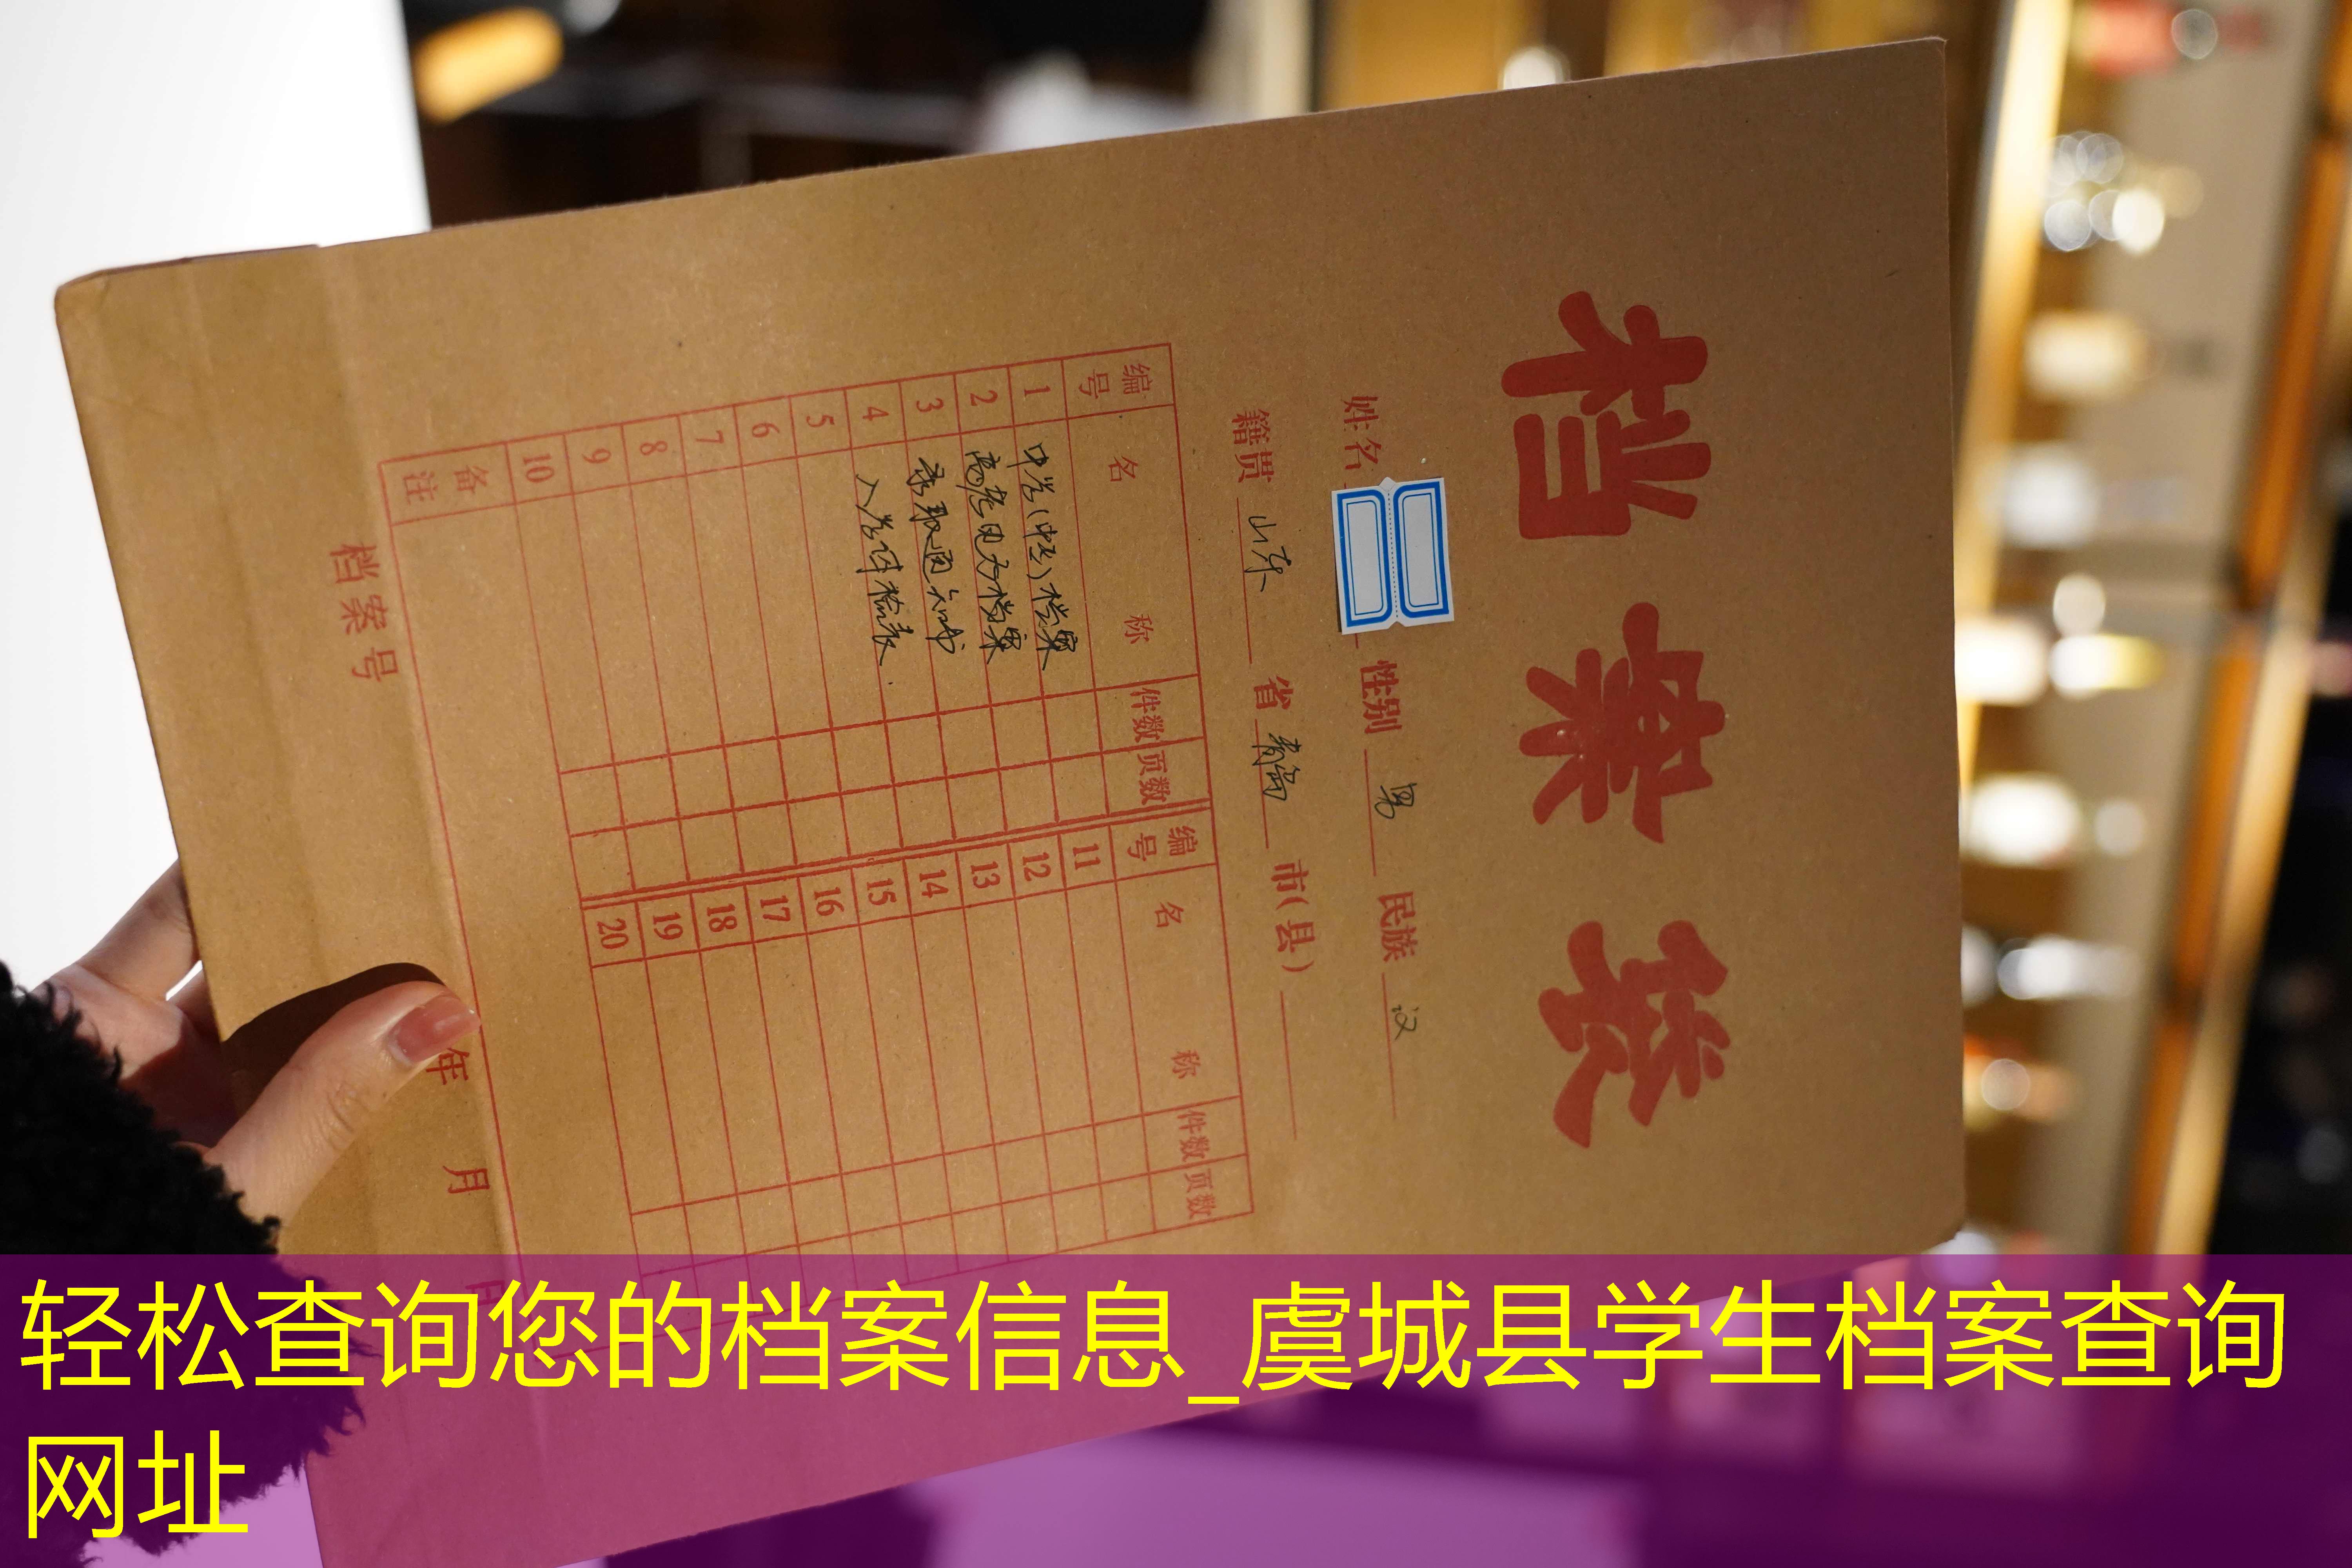 档案袋
姓名 性别 男 民族 汉
籍贯 山东 省 青岛 市(县)
编号 名称 件数 页数 编号 名称 件数 页数
1 中学(中专)档案 11
2 高考电子档案 12
3 录取通知书 13
4 入学体检表 14
5 15
6 16
7 17
8 18
9 19
10 20
备注
档案号 年 月 日
轻松查询您的档案信息_虞城县学生档案查询
网址